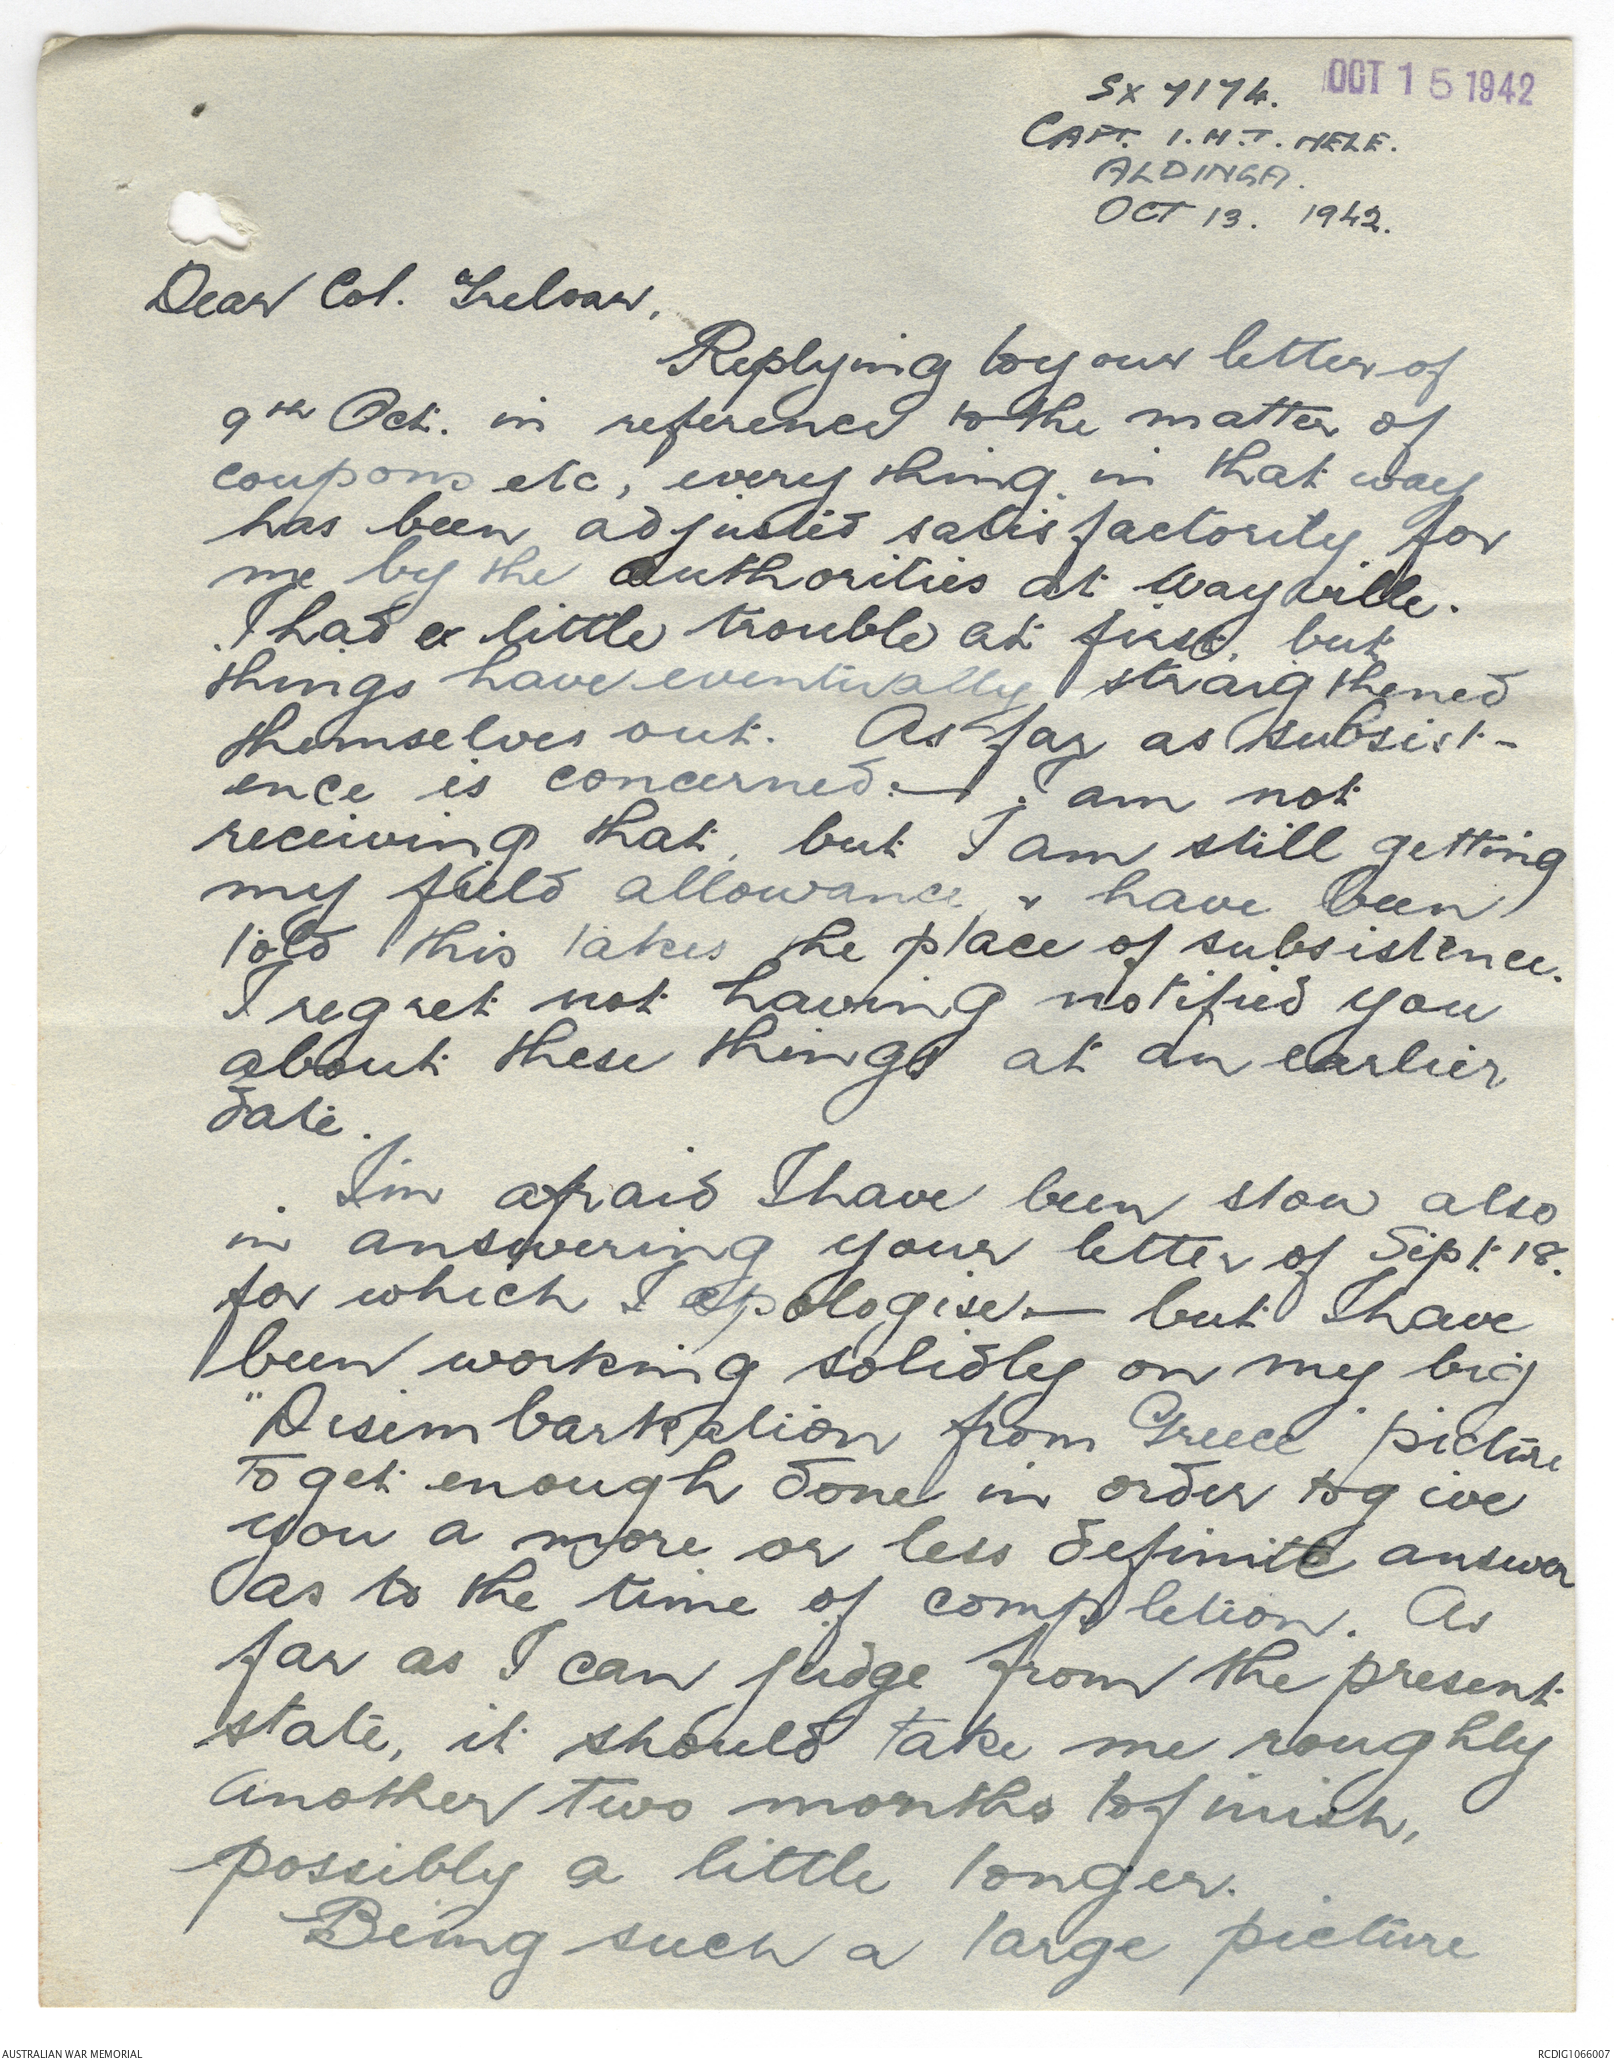 OCT 15 1942
SX 7174.
CAPT. I. H. T. HELE.
ALDINGA.
OCT 13. 1942.
Dear Col. Treloar,
Replying to your letter of
9th Oct. in reference to the matter of
coupons etc, every thing in that way
has been adjusted satisfactorily for
me by the authorities at Wayville.
I had a little trouble at first, but
things have eventually straightened
themselves out. As far as subsist-
ence is concerned:— I am not
receiving that, but I am still getting
my field allowance, & have been
told this takes the place of subsistence.
I regret not having notified you
about these things at an earlier
date.
I'm afraid I have been slow also
in answering your letter of Sept. 18.
for which I apologise — but I have
been working solidly on my big
"Disembarkation from Greece" picture
to get enough done in order to give
you a more or less definite answer
as to the time of completion. As
far as I can judge from the present
state, it should take me roughly
another two months to finish,
possibly a little longer.
Being such a large picture
AUSTRALIAN WAR MEMORIAL
RCDIG1066007